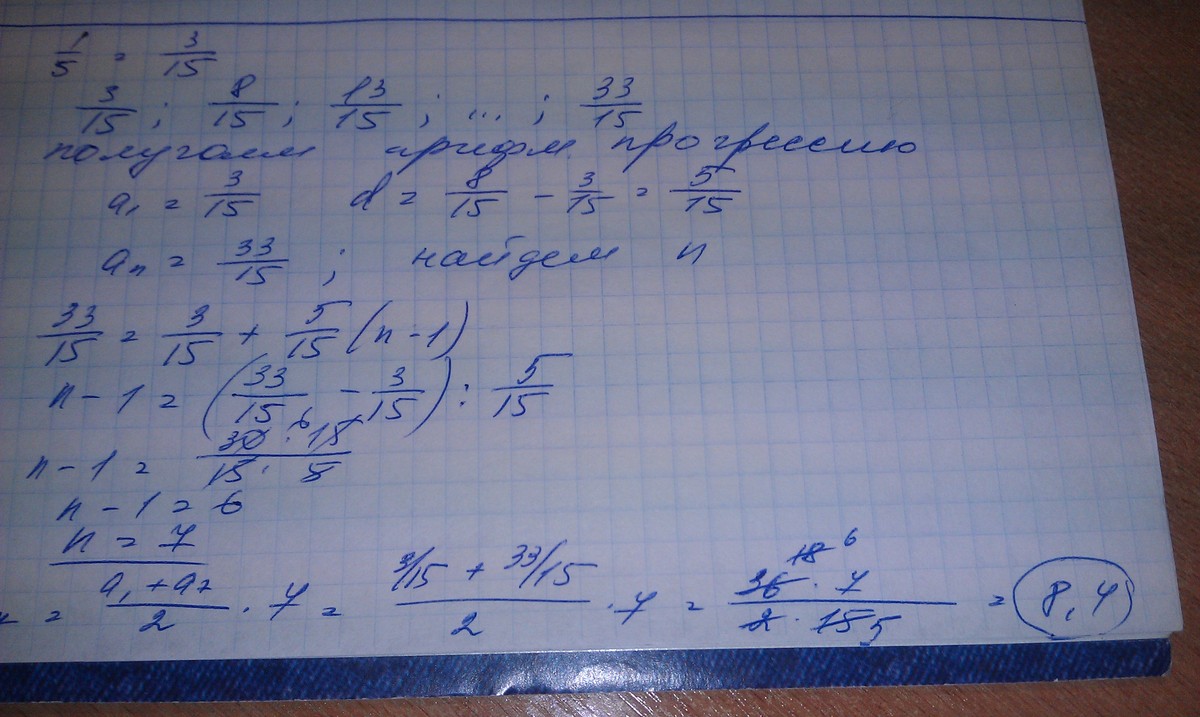 1/5 = 3/15
3/15 ; 8/15 ; 13/15 ; ... ; 33/15
получаем арифм. прогрессию
a₁ = 3/15 d = 8/15 - 3/15 = 5/15
aₙ = 33/15 ; найдем n
33/15 = 3/15 + 5/15 (n-1)
n-1 = (33/15 - 3/15) : 5/15
n-1 = 30 6 · 15 / 15 · 5
n-1 = 6
n = 7
= a₁ + a₇ / 2 · 7 = 3/15 + 33/15 / 2 · 7 = 36 18 6 · 7 / 2 · 15 5 = 8,4